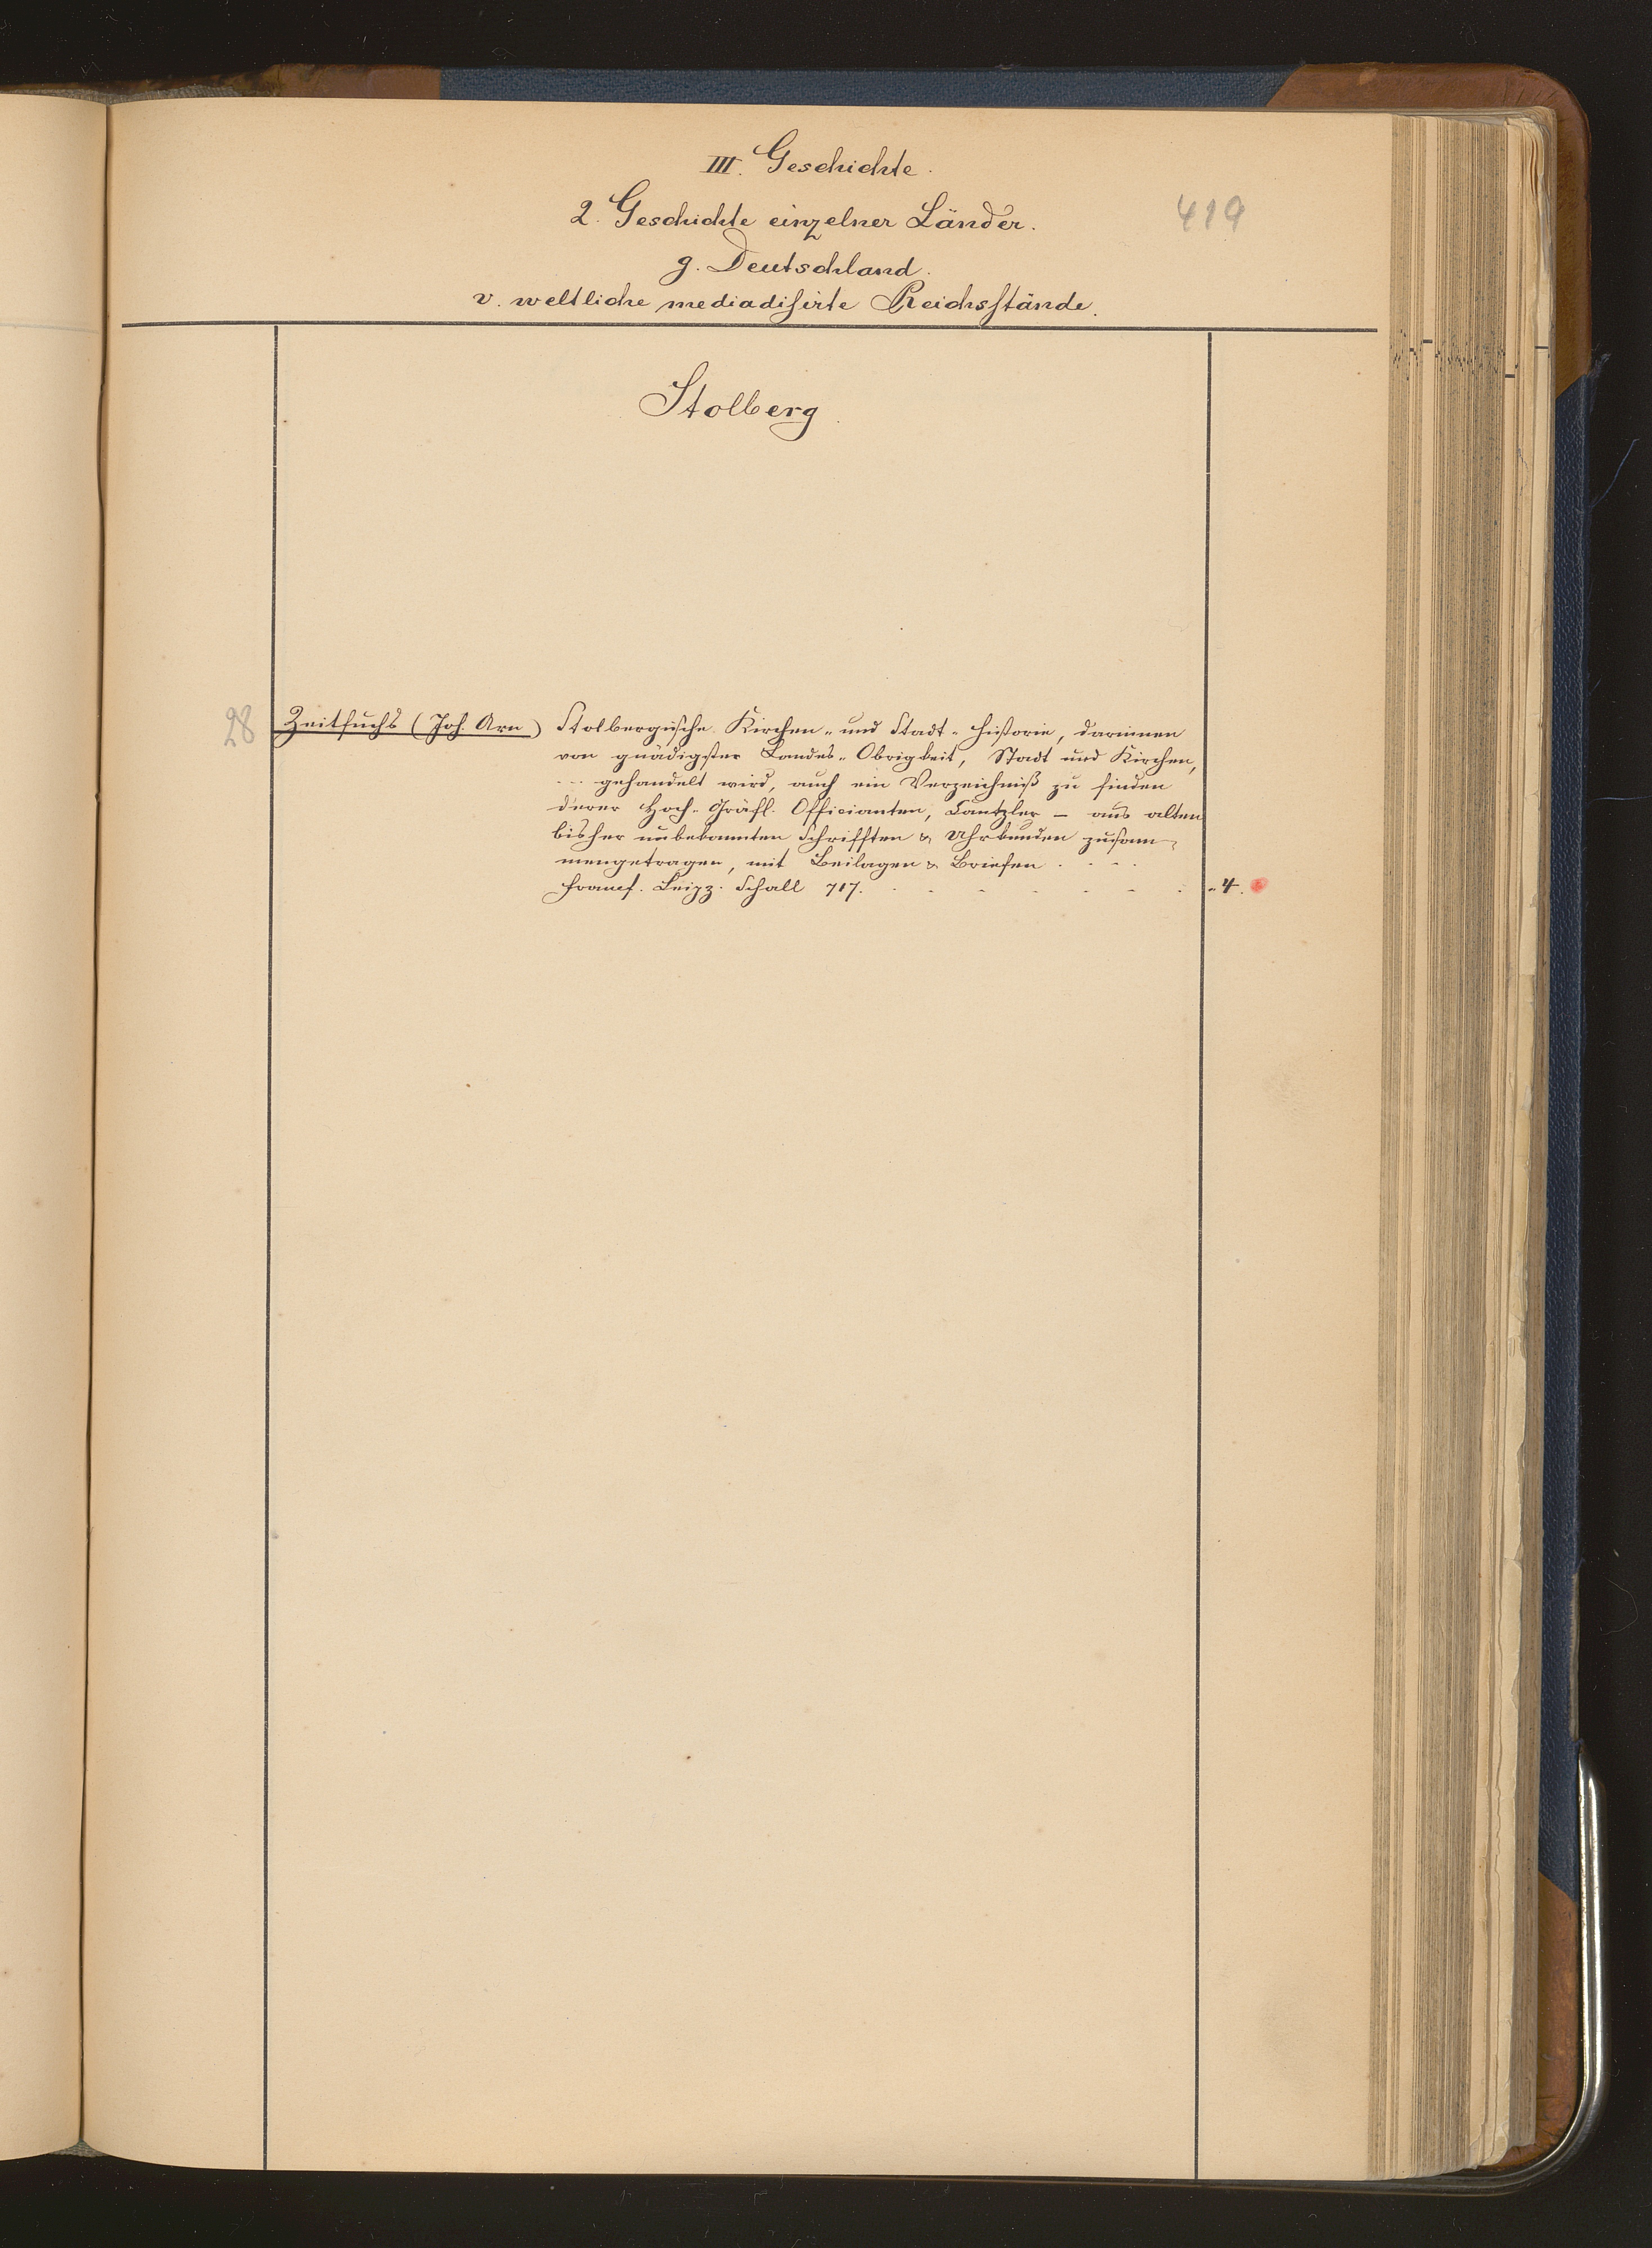 III. Geschichte.
2. Geschichte einzelner Länder.
419
g. Deutschland.
v. weltliche mediadisirte Reichsstände.
Stolberg
28 Zeitfuchs (Joh. Arn) Stolbergische Kirchen- und Stadt-Historie, darinnen
von gnädigster Landes-Obrigkeit, Stadt und Kirchen,
... gehandelt wird, auch ein Verzeichniß zu finden
derer Hoch-Gräfl. Officianten, Cantzler – aus alten
bisher unbekannten Schrifften & Uhrkunden zusam-
mengetragen, mit Beilagen & Briefen . . . .
Francf. Leipz. Schall 717. . . . . . . . „4.